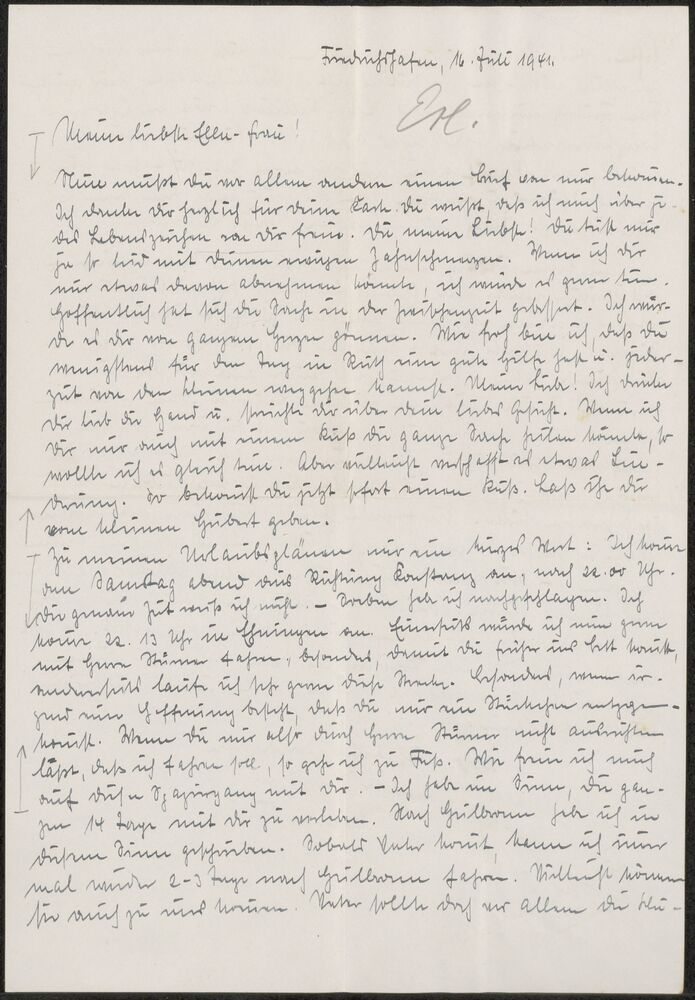 Friedrichshafen, 16. Juli 1941.
Erl.
Meine liebste Ellen-Frau!
Nun mußt Du vor allem andern einen Brief von mir bekommen.
Ich danke Dir herzlich für Deine Karte. Du weißt daß ich mich über je-
des Lebenszeichen von Dir freue. Du meine Liebste! Du tust mir
ja so leid mit Deinen ewigen Zahnschmerzen. Wenn ich Dir
nur etwas davon abnehmen könnte, ich würde es gern tun.
Hoffentlich hat sich die Sache in der Zwischenzeit gebessert. Ich wür-
de es Dir von ganzem Herzen gönnen. Wie froh bin ich, daß Du
wenigstens für den Tag in Ruth eine gute Hilfe hast u. jeder-
zeit von den Kleinen weggehen kannst. Meine Liebe! Ich drücke
Dir lieb die Hand u. streichle Dir über Dein liebes Gesicht. Wenn ich
Dir nur auch mit einem Kuß die ganze Sache heilen könnte, so
wollte ich es gleich tun. Aber vielleicht verschafft es etwas Lin-
derung. So bekommst Du jetzt sofort einen Kuß. Laß ihn Dir
vom kleinen Hubert geben.
Zu meinen Urlaubsplänen nur ein kurzes Wort: Ich komme
am Samstag abend aus Richtung Konstanz an, nach 22.00 Uhr.
Die genaue Zeit weiß ich nicht. – Soeben habe ich nachgeschlagen. Ich
komme 22.13 Uhr in an. Einerseits würde ich nun gern
mit Herrn Stürmer fahren, besonders, damit Du früher ins Bett kommst,
andererseits laufe ich sehr gern diese Strecke. Besonders, wenn ir-
gend eine Hoffnung besteht, daß Du mir ein Stückchen entgegen-
kommst. Wenn Du mir also durch Herrn Stürmer nicht ausrichten
läßt, daß ich fahren soll, so gehe ich zu Fuß. Wie freue ich mich
auf diesen Spaziergang mit Dir. – Ich habe im Sinn, die gan-
zen 14 Tage mit Dir zu verleben. Nach Heilbronn habe ich in
diesem Sinne geschrieben. Sobald Vater kommt, kann ich immer
mal wieder 2-3 Tage nach Heilbronn fahren. Vielleicht können
sie auch zu uns kommen. Vater sollte doch vor allem die